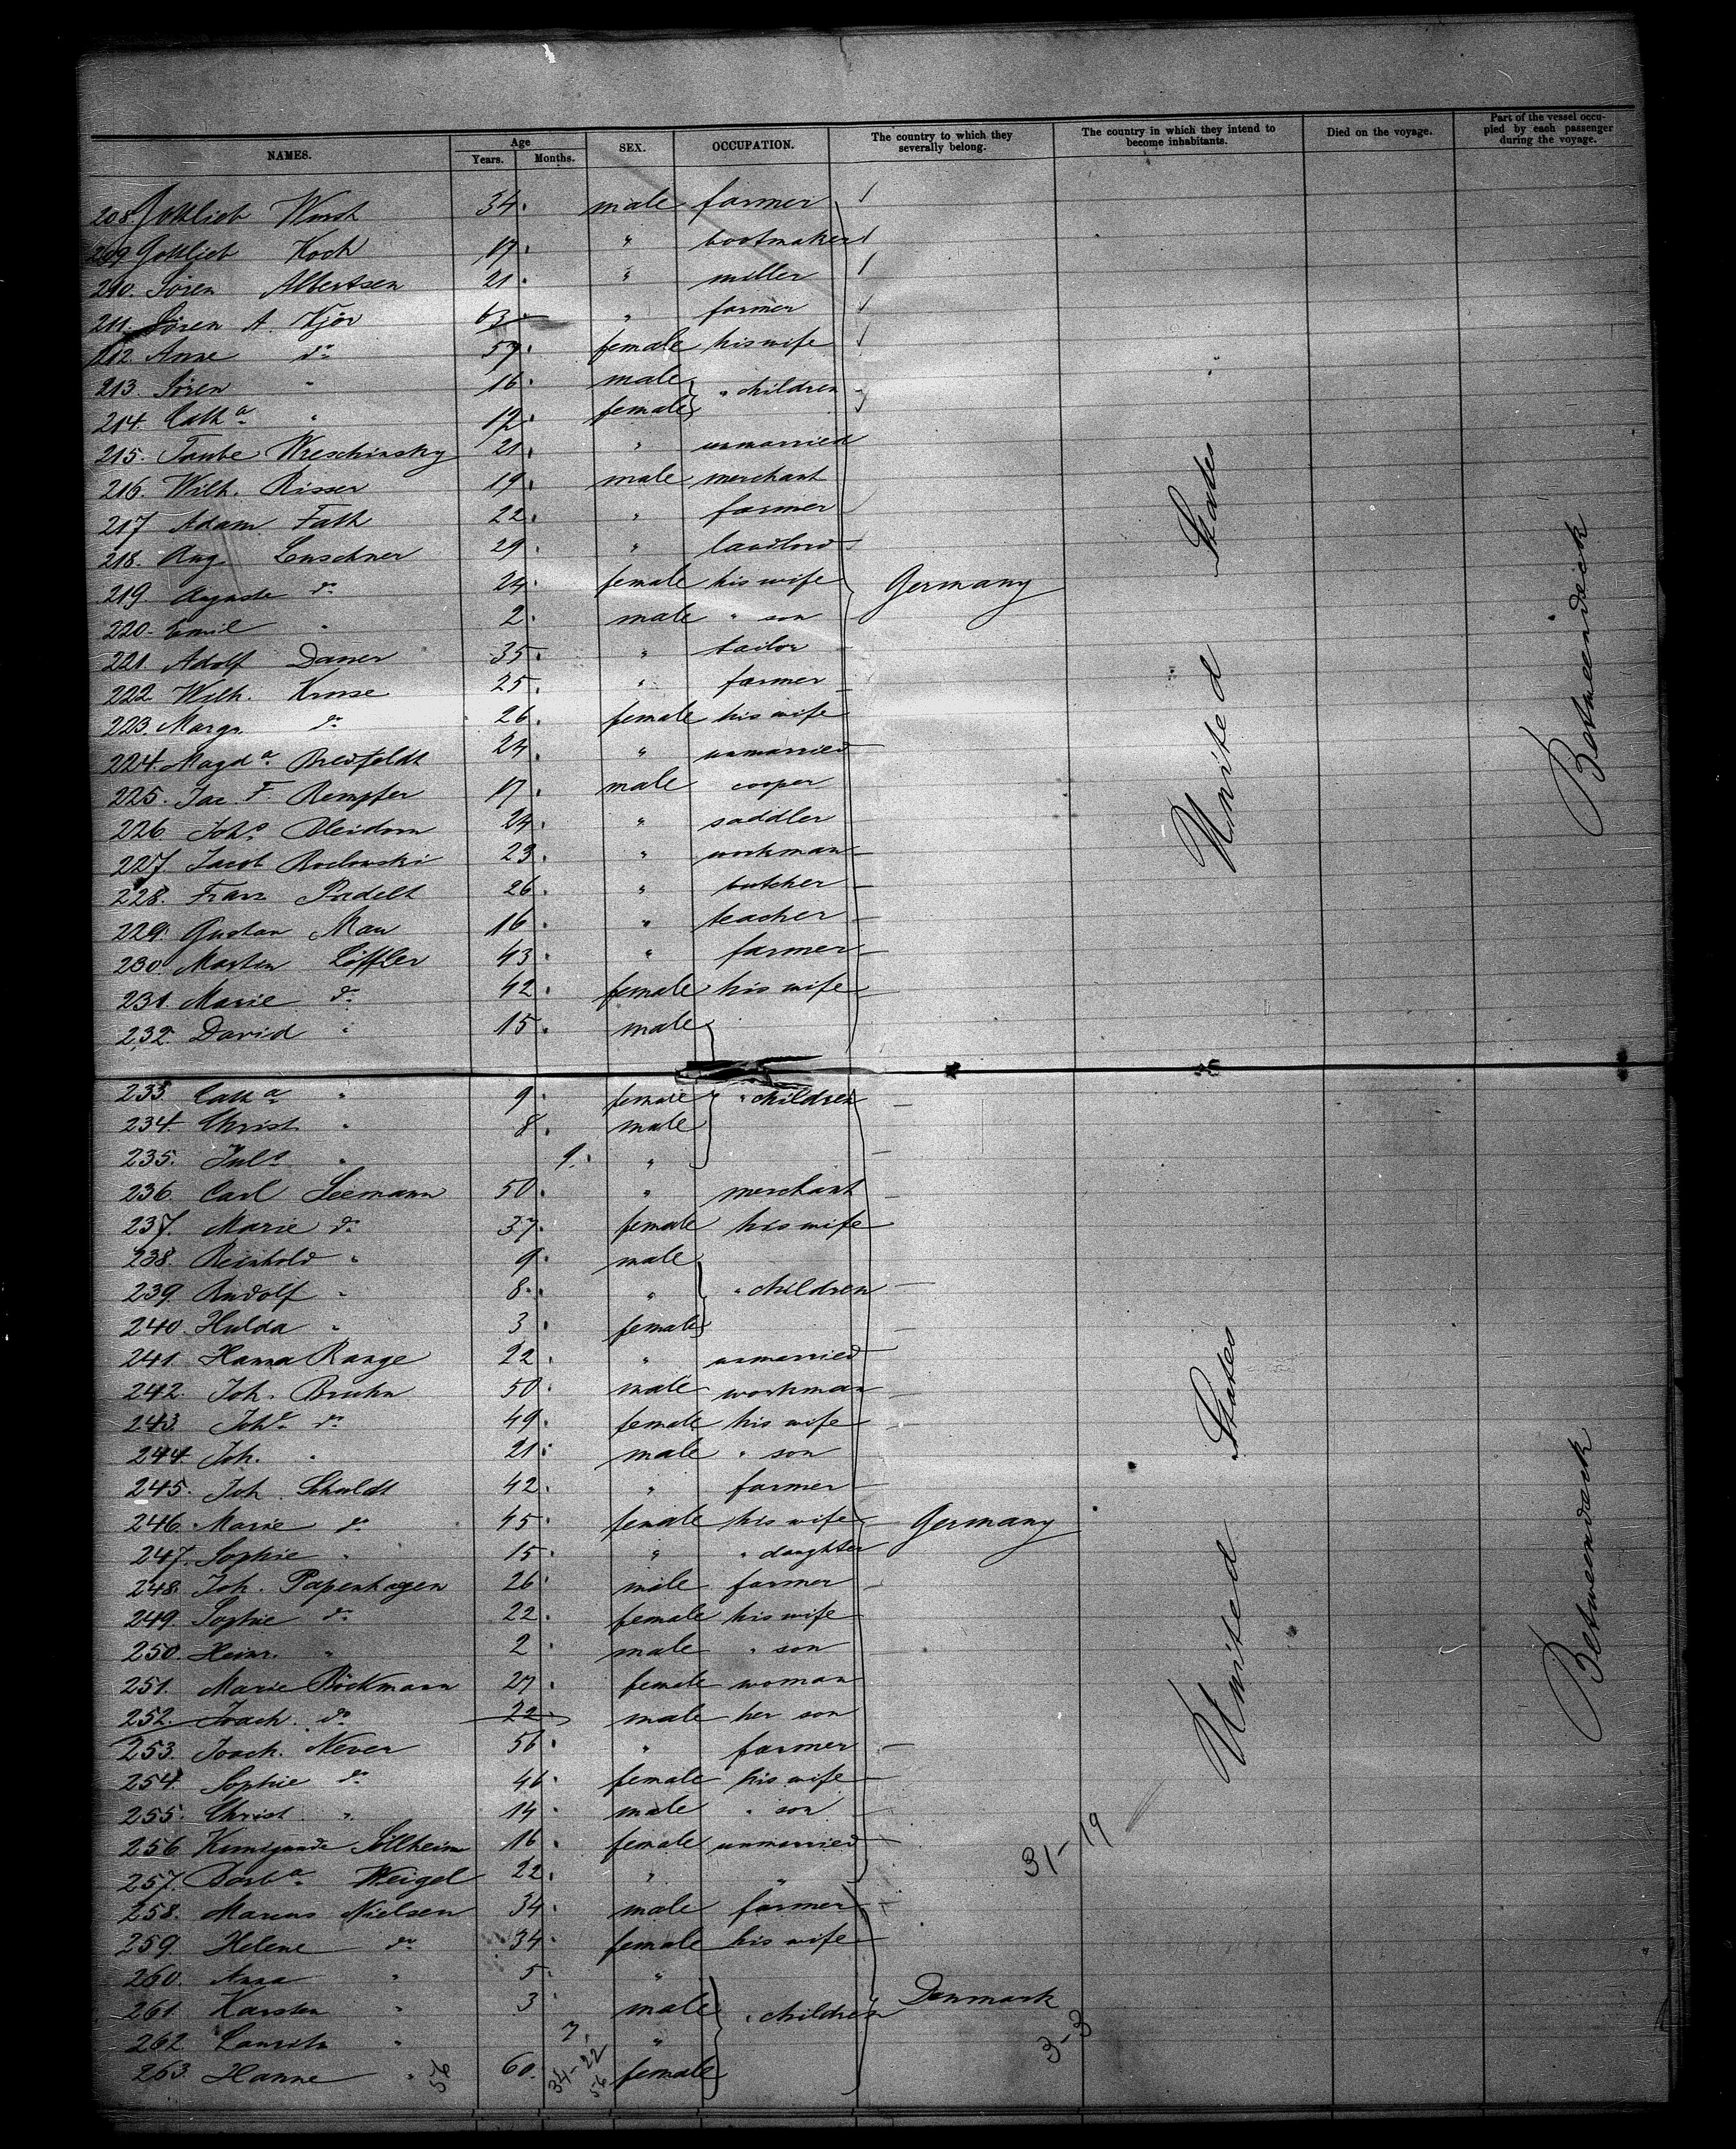 NAMES. Age Years. Months. SEX. OCCUPATION. The country to which they severally belong. The country in which they intend to become inhabitants. Died on the voyage. Part of the vessel occupied by each passenger during the voyage.
208. Gottlieb 34 male farmer
209 Gottlieb Koch 17 " bootmaker
210. Sören Albertsen 21 " miller
211. Sören A. Kjör 63 " farmer
212. Anne do 57 female his wife
213. Sören " 16 male " children
214. Catha " 12 female
215. Taube Wreschinsky 21 " unmarried
216. Wilh. Risser 19 male merchant
217 Adam Fath 22 " farmer
218. Aug. Leuschner 29 " landlord
219. Auguste do 24 female his wife Germany
220. Emil " 2 male " son
221. Adolf Daner 35 " tailor
222. Wilh. Kruse 25 " farmer
223. Margr. do 26 female his wife
224. Magda Bredfeldt 24 " unmarried
225. Jac. F. Rempfer 17 male cooper
226 Johs 24 " saddler
227. Jacob 23 " workman
228. Franz Padelt 26 " butcher
229. Gustav Mau 16 " teacher
230. Martin Löffler 43 " farmer
231. Marie do 42 female his wife
232. David " 15 male
United States
Betweendeck
233. Catha " 9 female " children
234. Christ. " 8 male
235. Juls " 9 "
236. Carl Seemann 50 " merchant
237. Marie do 37 female his wife
238. Reinhold " 9 male
239. Rudolf " 8 " " children
240. Hulda " 3 female
241. Hanna Range 22 " unmarried
242. Joh. Bruhn 50 male workman
243. Joha do 49 female his wife
244. Joh. " 21 male " son
245. Joh. Schuldt 42 " farmer
246. Marie do 45 female his wife Germany
247. Sophie " 15 " " daughter
248. Joh. Papenhagen 26 male farmer
249. Sophie do 22 female his wife
250. Heinr. " 2 male " son
251. Marie Böckmann 27 female woman
252. Joach. do 22 male her son
253. Joach. Never 56 " farmer
254. Sophie do 46 female his wife
255. Christ. " 14 male " son
256. Kunigunde Söllheim 16 female unmarried 31-19
257. Barba Weigel 22 " "
258. Marcus Nielsen 34 male farmer
259. Helene do 34 female his wife
260. Anna " 5 "
261. Karsten " 3 male " children Denmark
262. Lauritz " 7 "
263. Hanne " 60 female
56 34-22 56 3-3
United States
Betweendeck